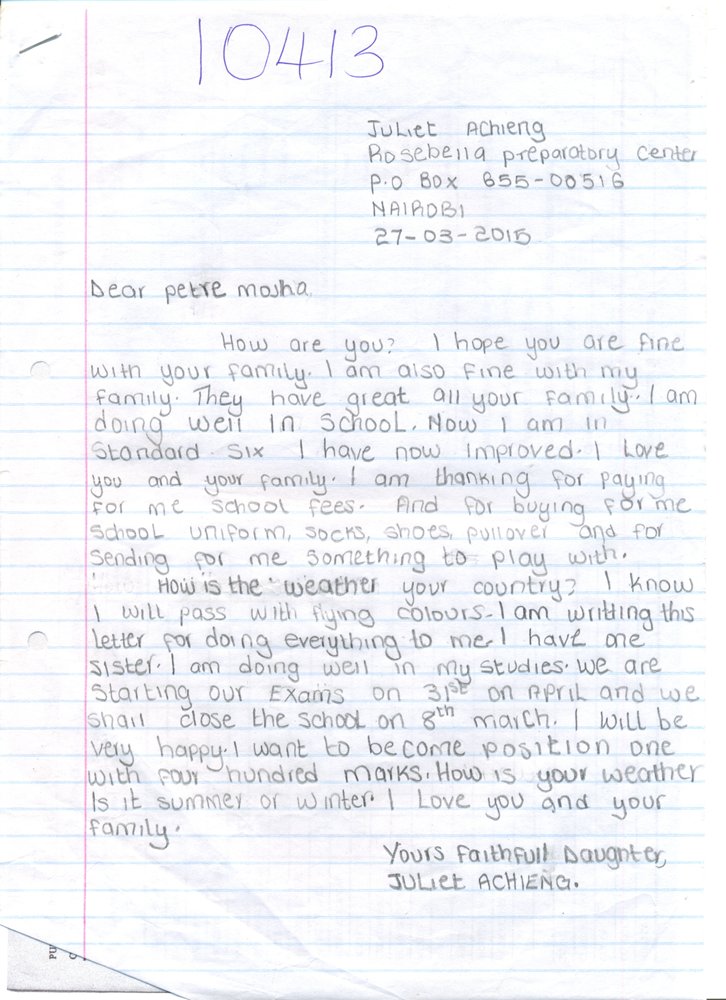 10413
Juliet Achieng
Rosebella preparatory center
P.O Box 655-00516
NAIROBI
27-03-2015
Dear petre mosha.
How are you? I hope you are fine
with your family. I am also fine with my
family. They have great all your family. I am
doing well in school. Now I am in
Standard six I have now improved. I Love
you and your family. I am thanking for paying
for me school fees. And for buying for me
school uniform, socks, shoes, pullover and for
sending for me something to play with.
How is the weather your country? I know
I will pass with flying colours. I am writting this
letter for doing everything to me. I have one
sister. I am doing well in my studies. We are
starting our Exams on 31st on April and we
shall close the school on 8th march. I will be
very happy. I want to become position one
with four hundred marks. How is your weather
Is it summer or winter. I Love you and your
family.
Yours Faithfull Daughter,
Juliet ACHIENG.